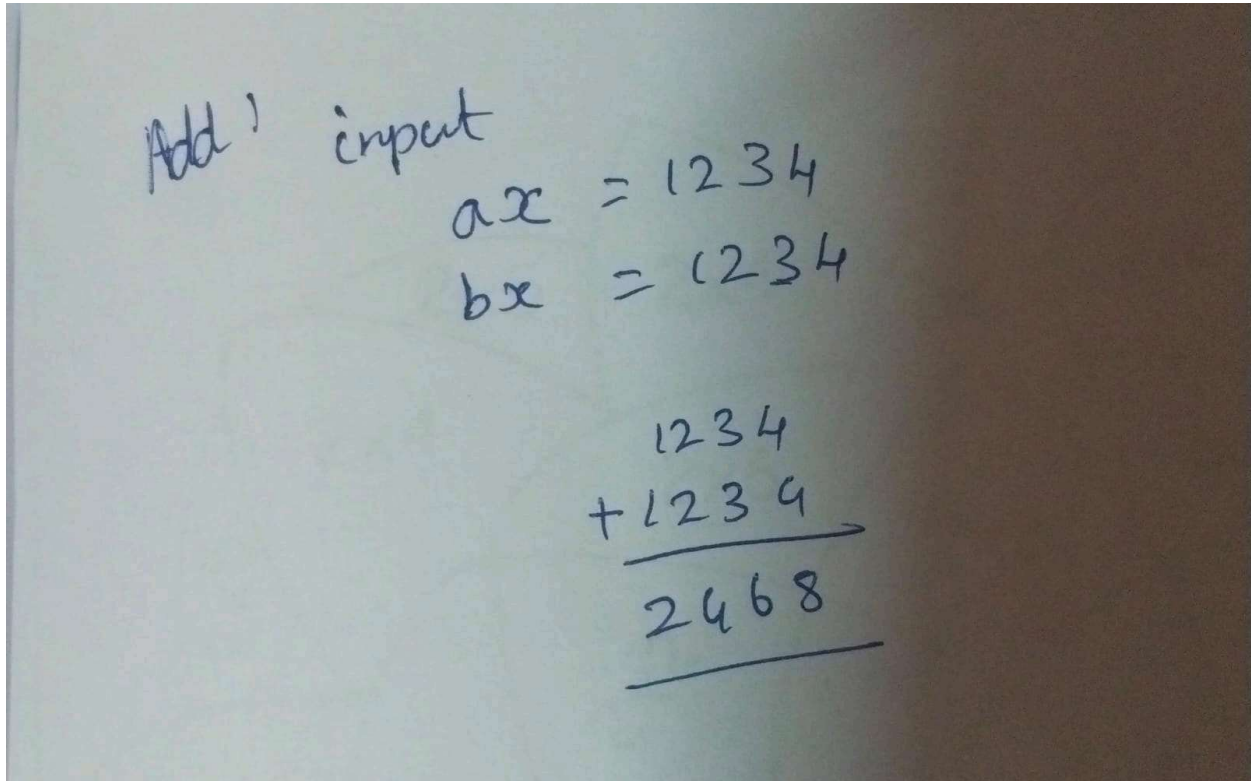 Add' input
ax = 1234
bx = 1234
1234
+1234
2468